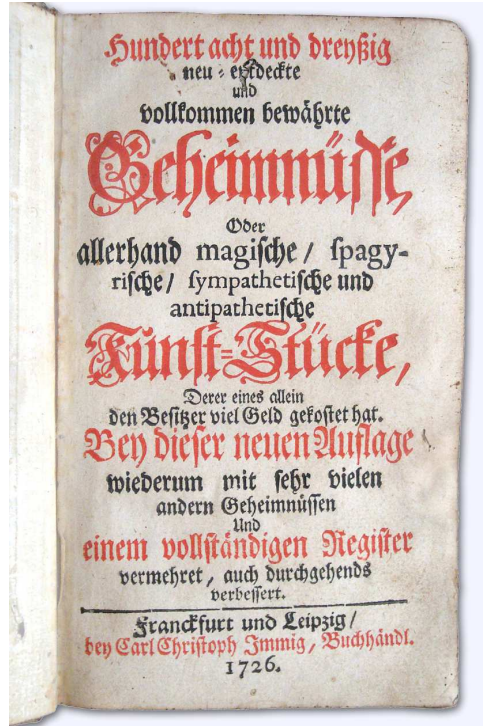 Hundert acht und dreyßig
neu-entdeckte
und
vollkommen bewährte
Geheimnüsse,
Oder
allerhand magische / spagy-
rische / sympathetische und
antipathetische
Kunst-Stücke,
Derer eines allein
den Besitzer viel Geld gekostet hat.
Bey dieser neuen Auflage
wiederum mit sehr vielen
andern Geheimnüssen
Und
einem vollständigen Register
vermehret, auch durchgehends
verbessert.
Franckfurt und Leipzig /
bey Carl Christoph Immig, Buchhändl.
1726.